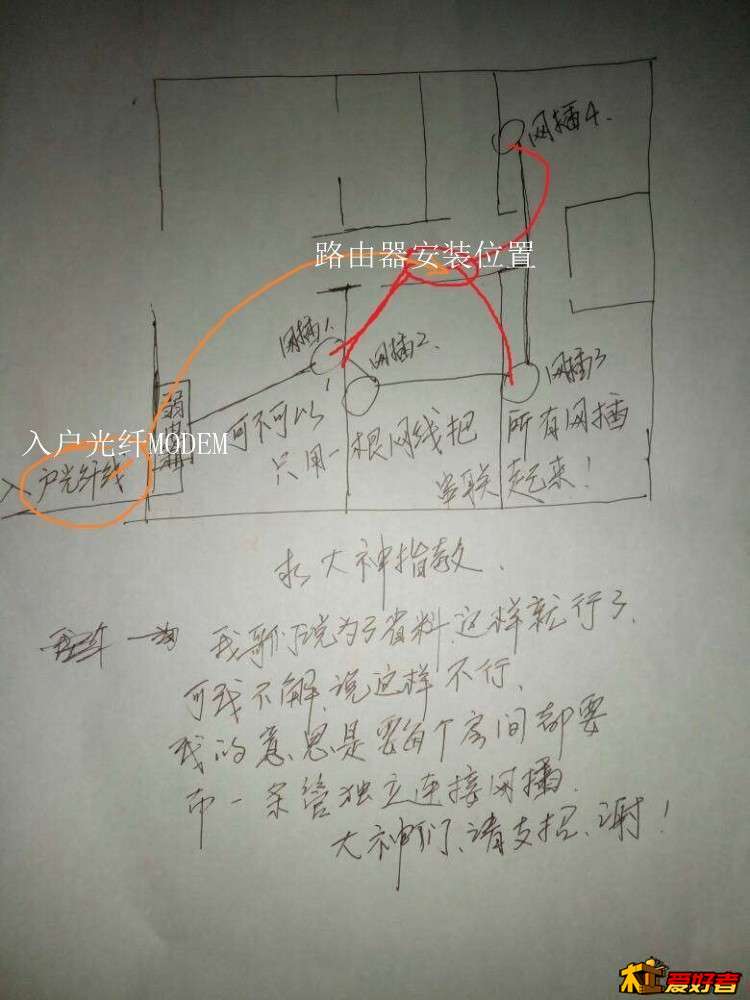 网插4.
路由器安装位置
网插1.
网插2.
网插3
弱电箱
入户光纤MODEM
入户光纤线
可不可以
只用一根网线把
所有网插
串联起来!
求大神指教.
我哥们说为了省料.这样就行了.
可我不解.说这样不行.
我的意思是要每个房间都要
布一条管独立连接网插.
大神们、请支招、谢!
爱好者